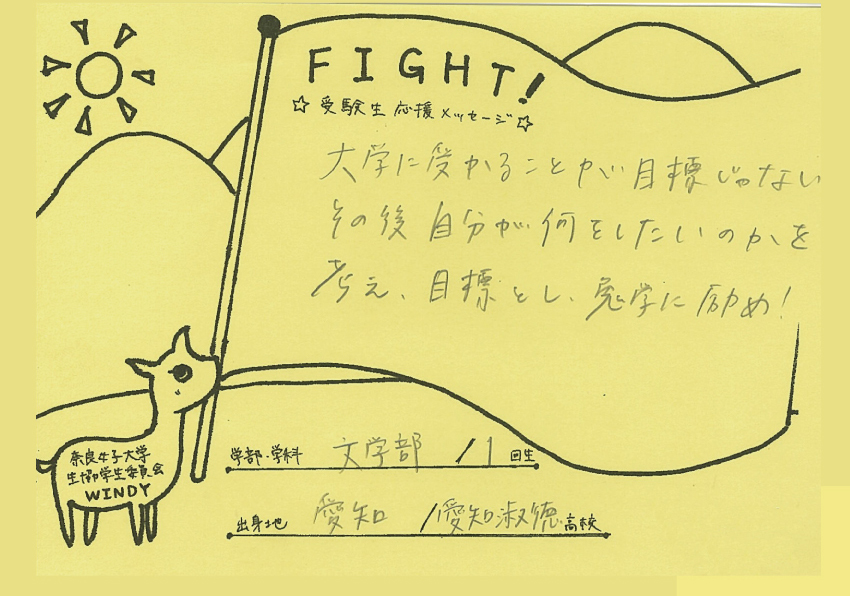 FIGHT!
☆受験生応援メッセージ☆
大学に受かることが目標じゃない
その後自分が何をしたいのかを
考え、目標とし、勉学に励め!
学部・学科 文学部 /1 回生
出身地 愛知 /愛知淑徳高校
奈良女子大学
生協学生委員会
WINDY